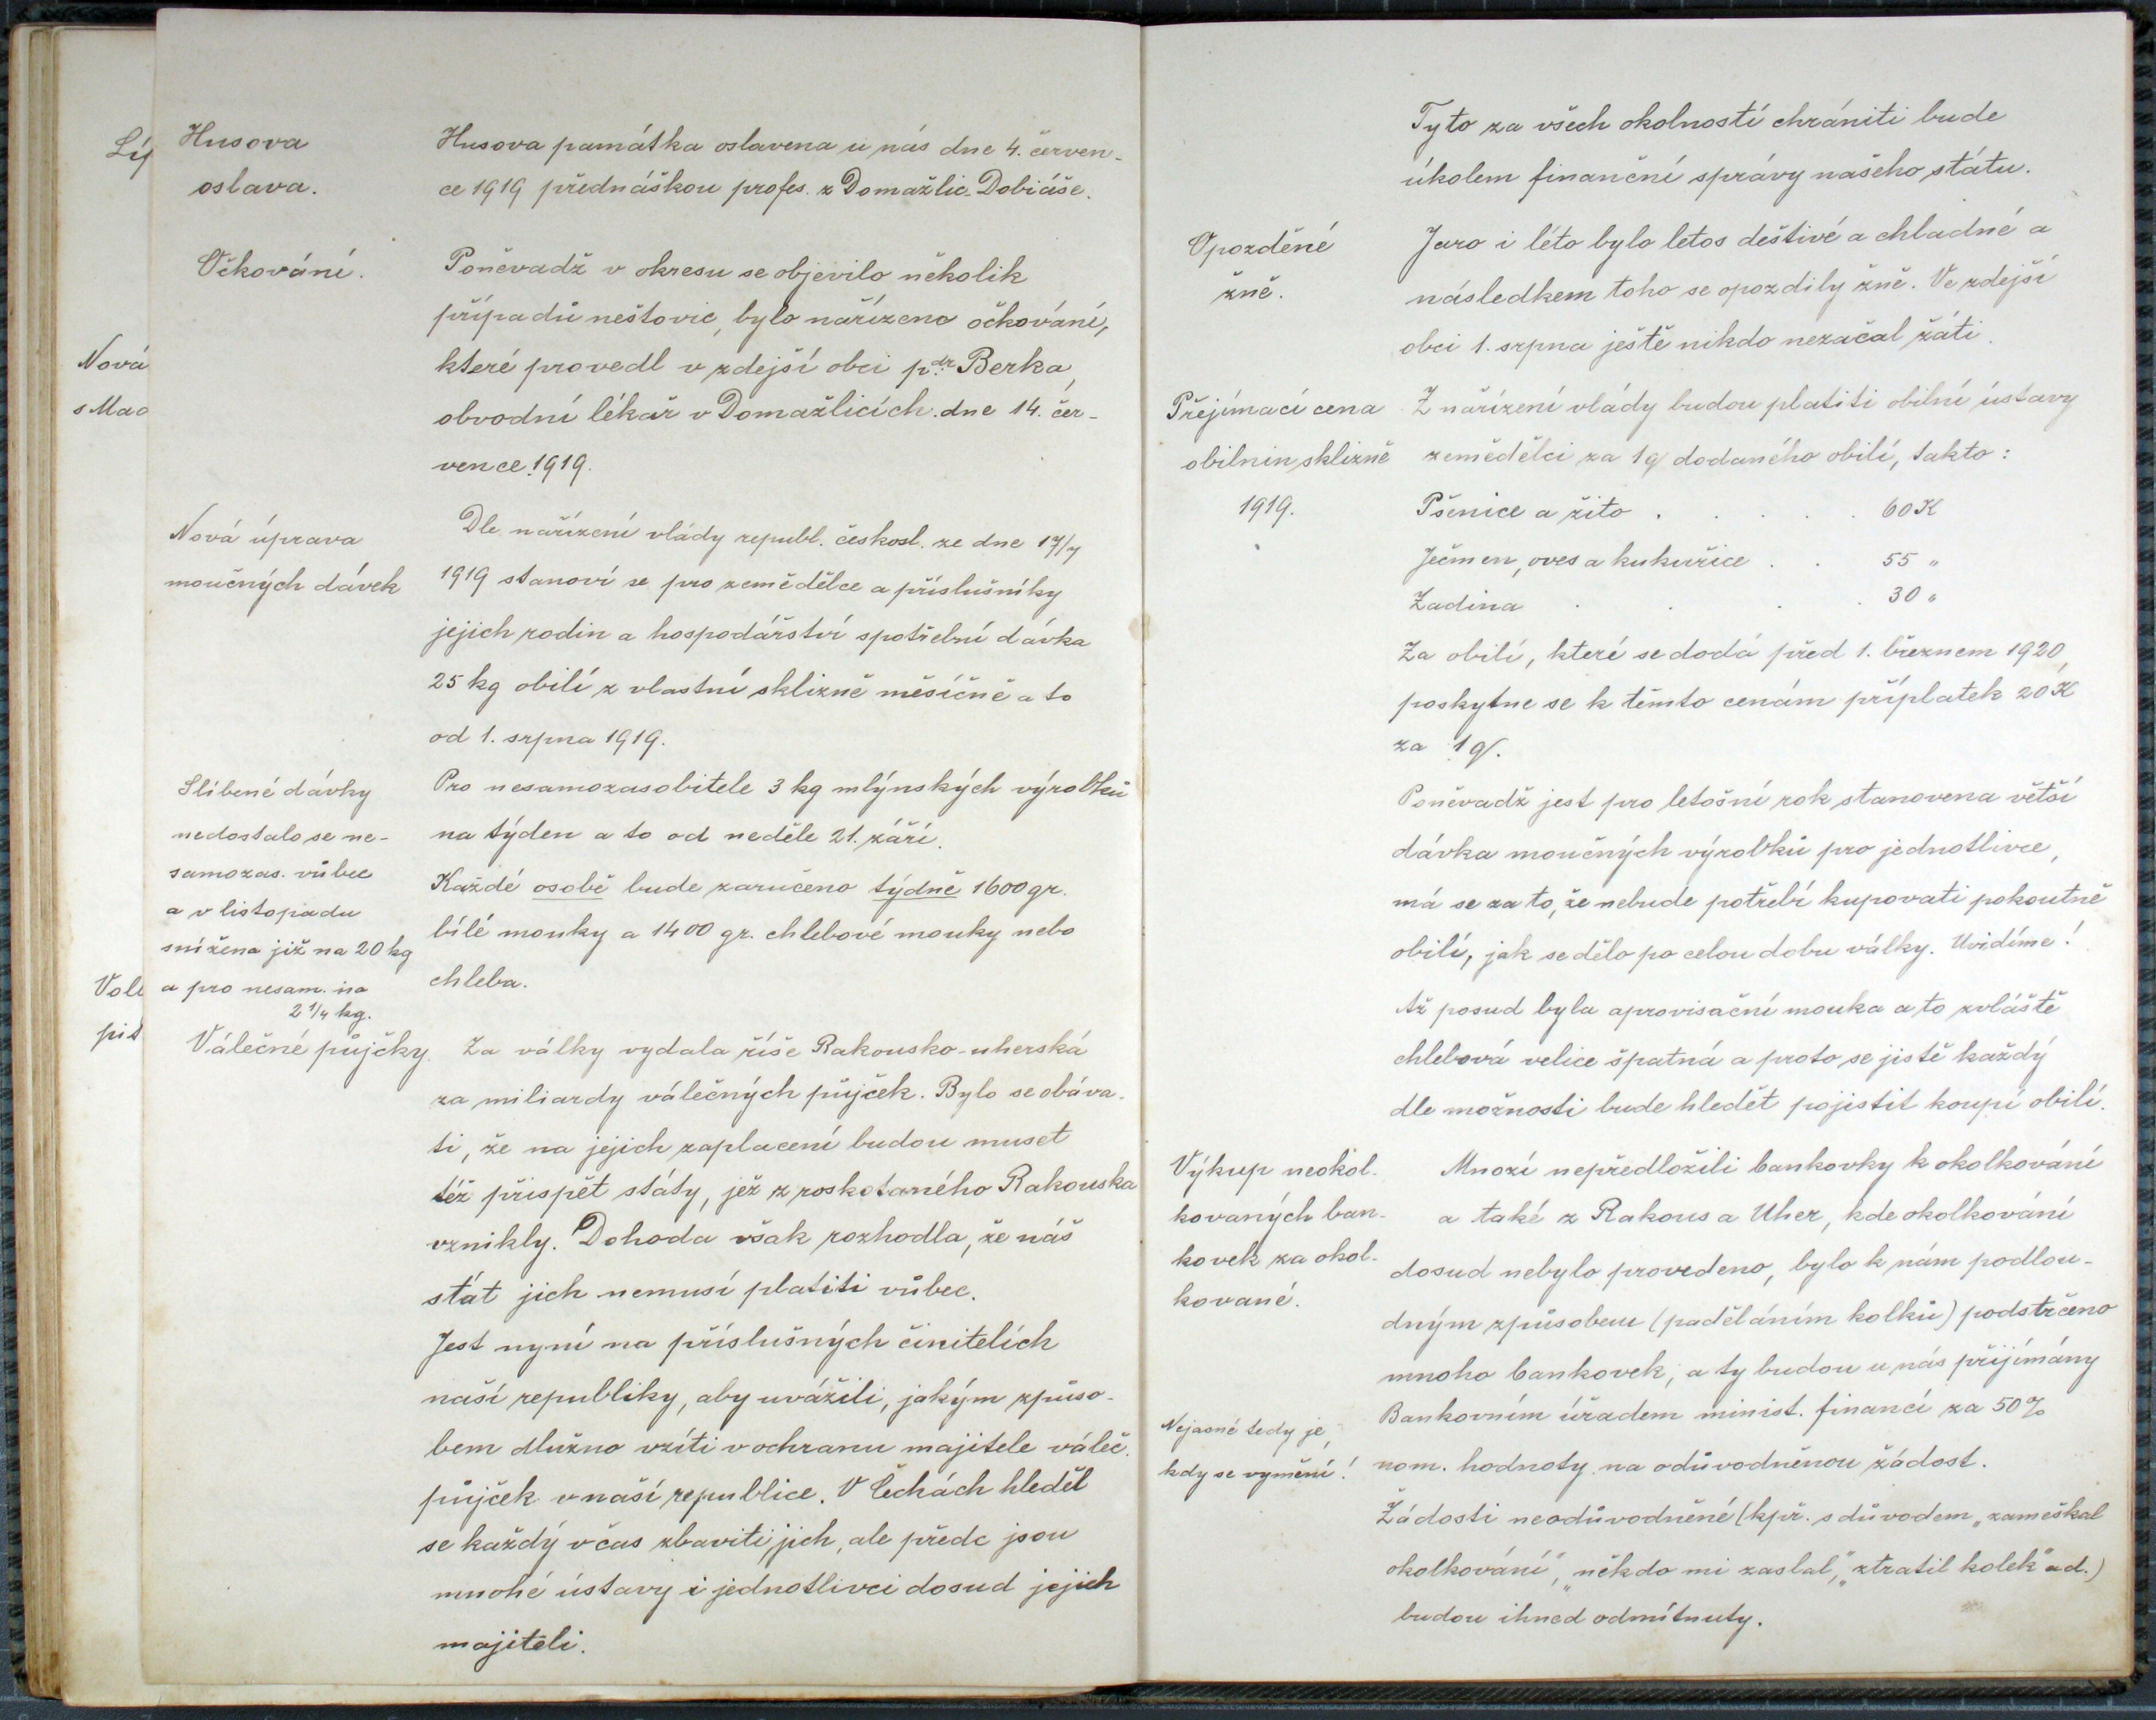 Líp
Nová
s Mao
Vole
pit
Husova
oslava.
Husova památka oslavena u nás dne 4. červen-
ce 1919 přednáškou profes. z Domažlic Dobiáše.
Očkování.
Poněvadž v okresu se objevilo několik
případů neštovic, bylo nařízeno očkování,
které provedl v zdejší obci p. dr. Berka,
obvodní lékař v Domažlicích dne 14. čer-
vence 1919.
Nová úprava
moučných dávek
Dle nařízení vlády republ. českosl. ze dne 17/7
1919 stanoví se pro zemědělce a příslušníky
jejich rodin a hospodářství spotřební dávka
25 kg obilí z vlastní sklizně měsíčně a to
od 1. srpna 1919.
Slíbené dávky
nedostalo se ne-
samozas. vůbec
a v listopadu
snížena již na 20 kg
a pro nesam. na
2 1/4 kg.
Pro nesamozasobitele 3 kg mlýnských výrobků
na týden a to od neděle 21. září.
Každé osobě bude zaručeno týdně 1600 gr.
bílé mouky a 1400 gr. chlebové mouky nebo
chleba.
Válečné půjčky.
Za války vydala říše Rakousko-uherská
za miliardy válečných půjček. Bylo se obáva-
ti, že na jejich zaplacení budou muset
též přispět státy, jež z roskotaného Rakouska
vznikly. Dohoda však rozhodla, že náš
stát jich nemusí platiti vůbec.
Jest nyní na příslušných činitelích
naší republiky, aby uvážili, jakým způso-
bem dlužno vzíti v ochranu majitele váleč.
půjček v naší republice. V Čechách hleděl
se každý včas zbaviti jich, ale přede jsou
mnohé ústavy i jednotlivci dosud jejich
majiteli.
Tyto za všech okolností chrániti bude
úkolem finanční správy našeho státu.
Opozděné
žně.
Jaro i léto bylo letos deštivé a chladné a
následkem toho se opozdily žně. Ve zdejší
obci 1. srpna ještě nikdo nezačal žáti.
Přejímací cena
obilnin sklizně
1919.
Z nařízení vlády budou platiti obilní ústavy
zemědělci za 1 q dodaného obilí, takto:
Pšenice a žito . . . . . 60 K
Ječmen, oves a kukuřice . . 55 "
Zadina . . . . 30 "
Za obilí, které se dodá před 1. březnem 1920,
poskytne se k těmto cenám příplatek 20 K
za 1 q.
Poněvadž jest pro letošní rok stanovena větší
dávka moučných výrobků pro jednotlivce,
má se za to, že nebude potřebí kupovati pokoutně
obilí, jak se dělo po celou dobu války. Uvidíme!
Až posud byla aprovisační mouka a to zvláště
chlebová velice špatná a proto se jistě každý
dle možnosti bude hledět pojistit koupí obilí.
Výkup neokol-
kovaných ban-
kovek za okol-
kované.
Mnozí nepředložili bankovky k okolkování
a také z Rakous a Uher, kde okolkování
dosud nebylo provedeno, bylo k nám podlou-
dným způsobem (paděláním kolků) podstrčeno
mnoho bankovek, a ty budou u nás přijímány
Bankovním úřadem minist. financí za 50%
nom. hodnoty na odůvodněnou žádost.
Nejasné tedy je,
kdy se vymění!
Žádosti neodůvodněné (kpř. s důvodem „zameškal
okolkování“, „někdo mi zaslal“, „ztratil kolek“ ad.)
budou ihned odmítnuty.